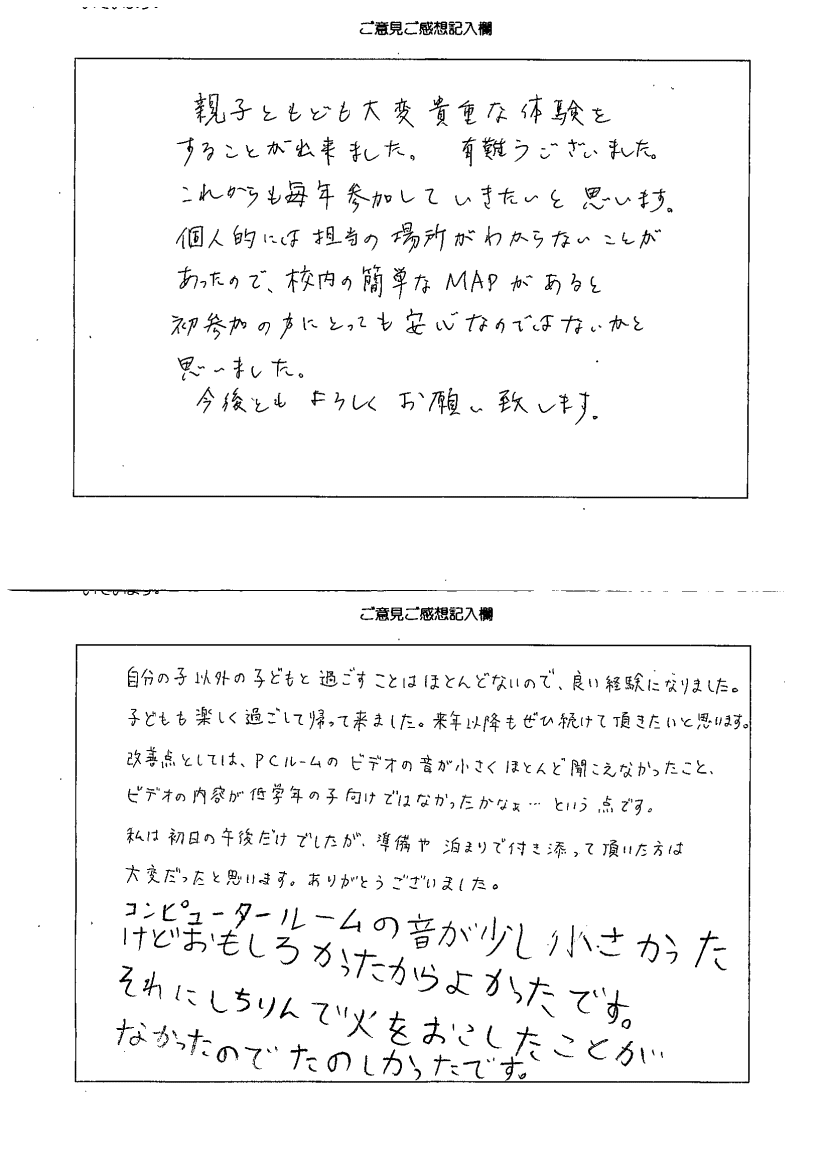 ご意見ご感想記入欄
親子ともども大変貴重な体験を
することが出来ました。 有難うございました。
これからも毎年参加していきたいと思います。
個人的には担当の場所がわからないことが
あったので、校内の簡単なMAPがあると
初参加の方にとっても安心なのではないかと
思いました。
今後ともよろしくお願い致します。
ご意見ご感想記入欄
自分の子以外の子どもと過ごすことはほとんどないので、良い経験になりました。
子どもも楽しく過ごして帰って来ました。来年以降もぜひ続けて頂きたいと思います。
改善点としては、PCルームのビデオの音が小さくほとんど聞こえなかったこと、
ビデオの内容が低学年の子向けではなかったかなぁ…という点です。
私は初日の午後だけでしたが、準備や泊まりで付き添って頂いた方は
大変だったと思います。ありがとうございました。
コンピュータールームの音が少し小さかった
けどおもしろかったからよかったです。
それにしちりんで火をおこしたことが
なかったのでたのしかったです。